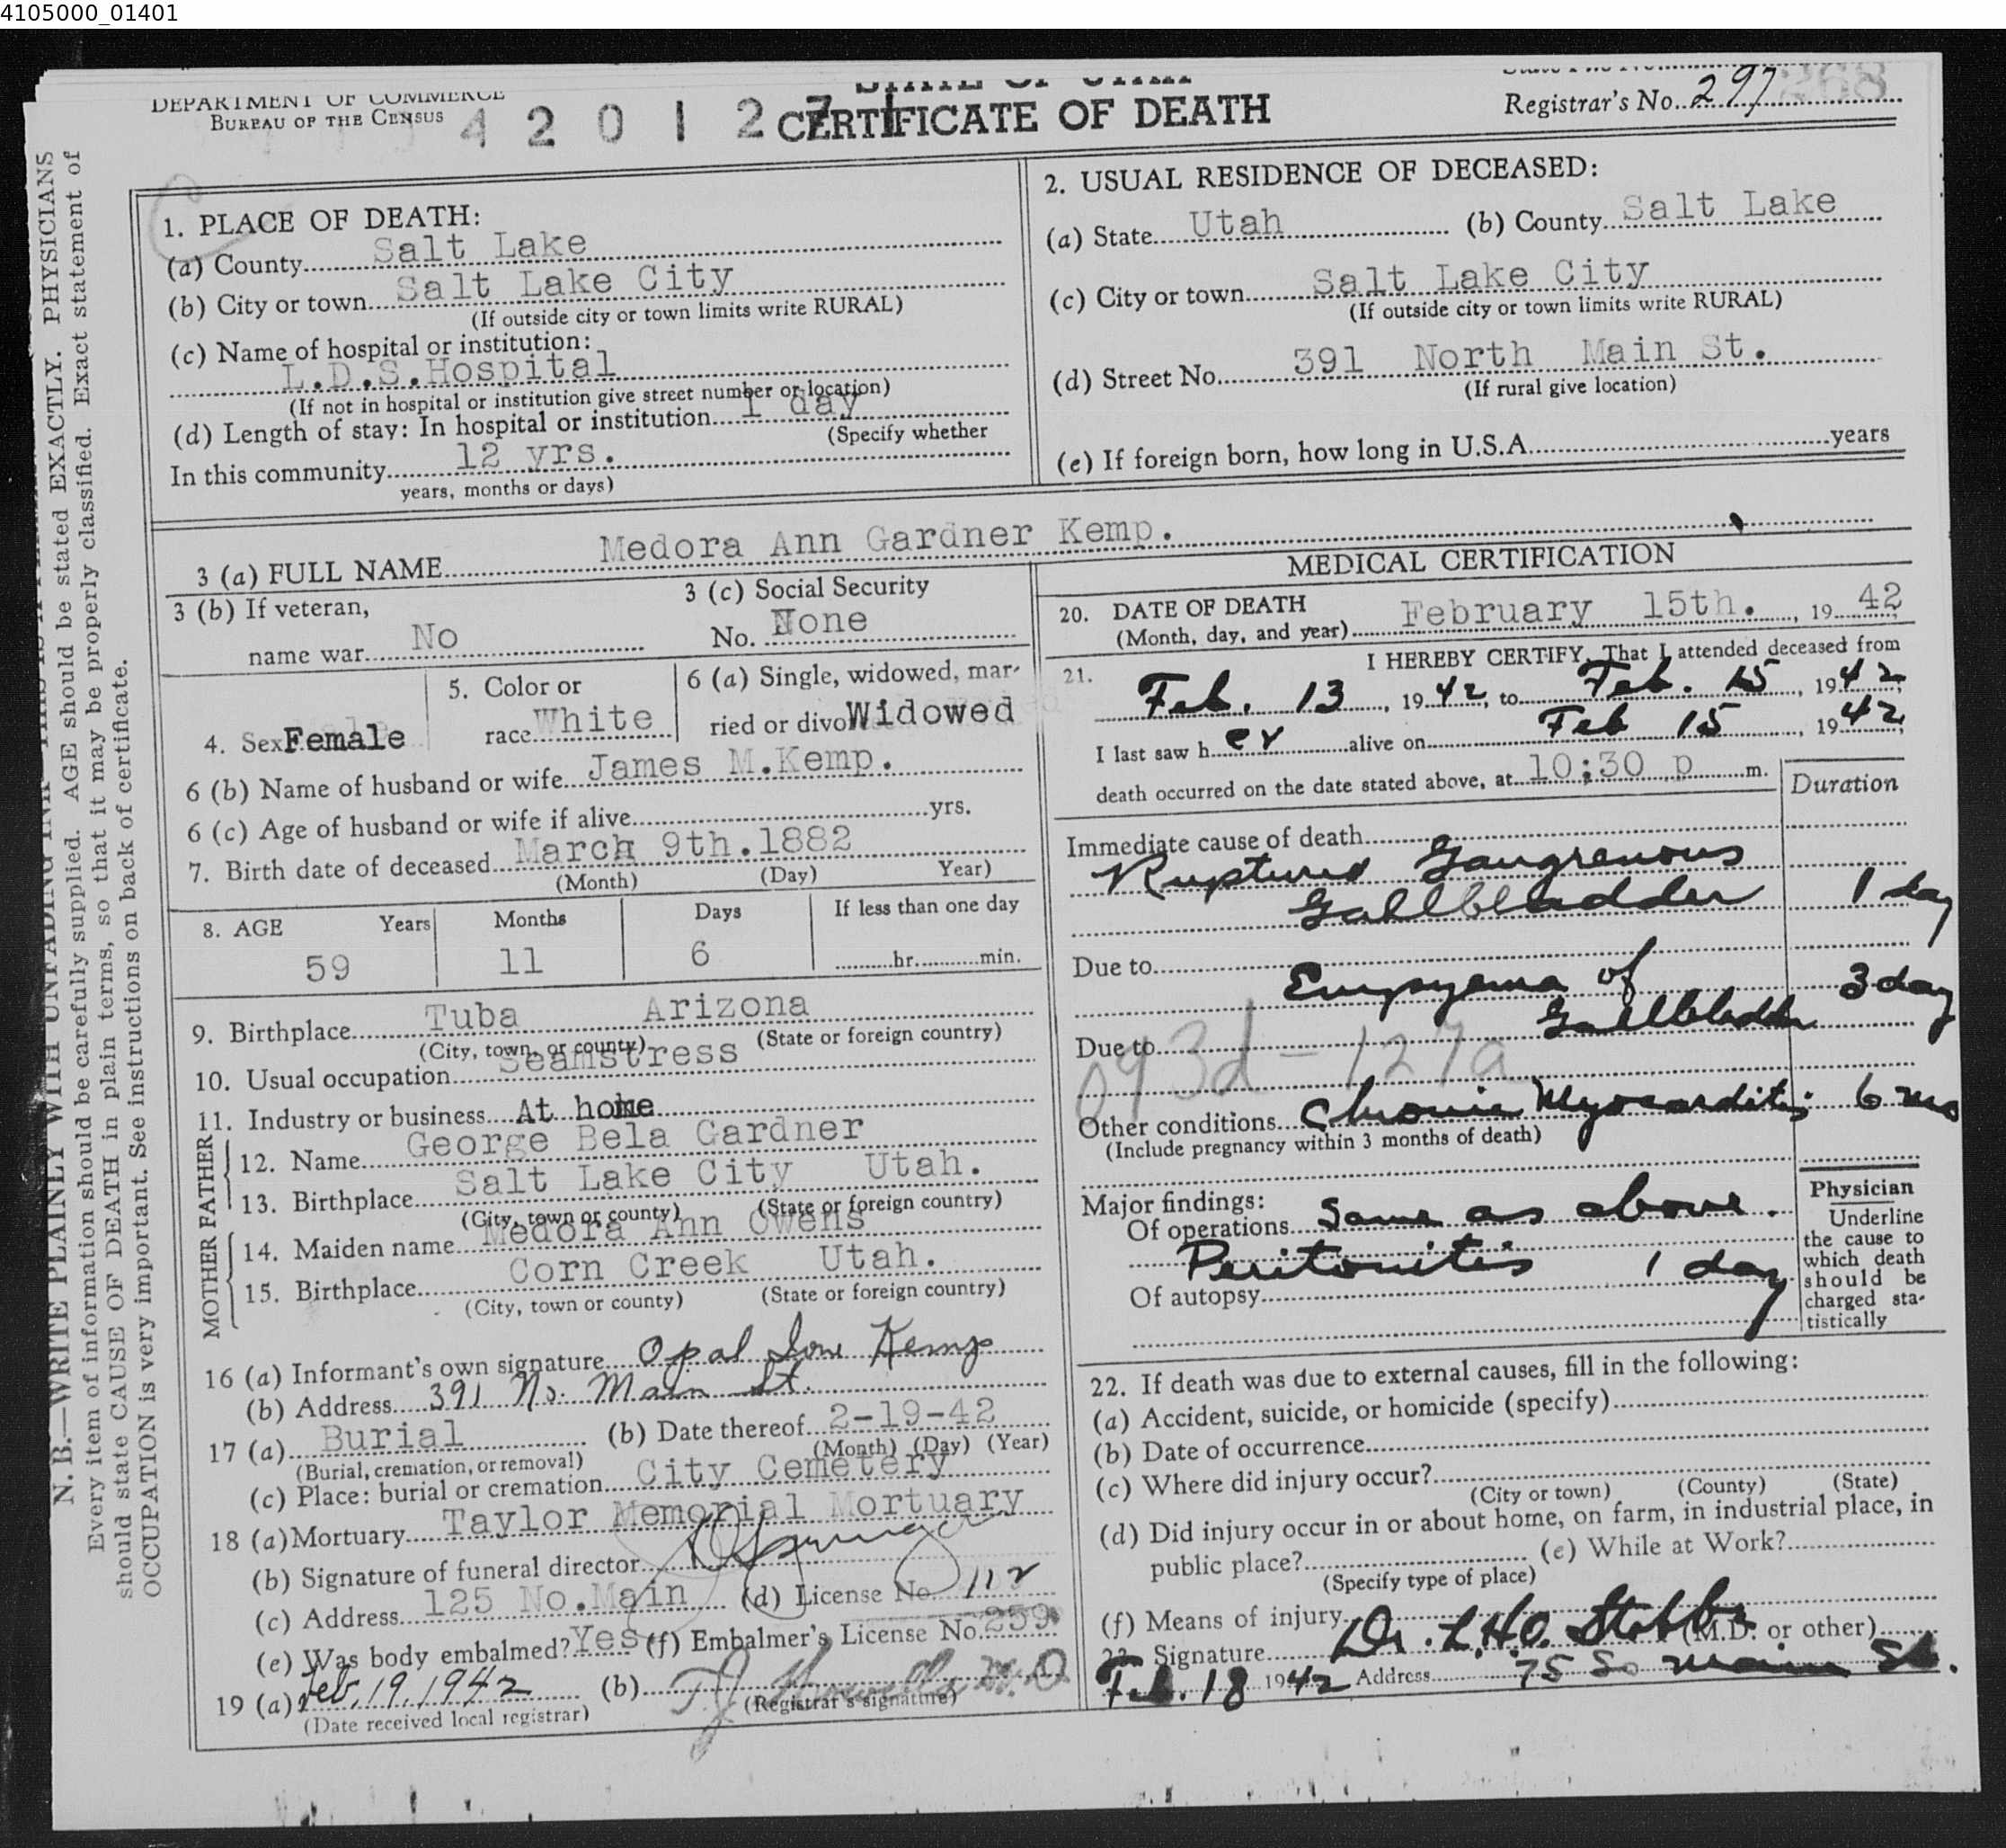 4105000_01401
DEPARTMENT OF COMMERCE
BUREAU OF THE CENSUS
STATE OF UTAH
4 2 0 1 2 7 1
CERTIFICATE OF DEATH
Registrar's No. 297
268
1. PLACE OF DEATH:
(a) County Salt Lake
(b) City or town Salt Lake City
(If outside city or town limits write RURAL)
(c) Name of hospital or institution:
L.D.S.Hospital
(If not in hospital or institution give street number or location)
(d) Length of stay: In hospital or institution 1 day
(Specify whether
In this community 12 yrs.
years, months or days)
2. USUAL RESIDENCE OF DECEASED:
(a) State Utah (b) County Salt Lake
(c) City or town Salt Lake City
(If outside city or town limits write RURAL)
(d) Street No. 391 North Main St.
(If rural give location)
(e) If foreign born, how long in U.S.A. years
3 (a) FULL NAME Medora Ann Gardner Kemp.
3 (b) If veteran,
name war No
3 (c) Social Security
No. None
4. Sex Female
5. Color or
race White
6 (a) Single, widowed, mar-
ried or divo Widowed
6 (b) Name of husband or wife James M.Kemp.
6 (c) Age of husband or wife if alive yrs.
7. Birth date of deceased March 9th.1882
(Month) (Day) Year)
8. AGE Years Months Days If less than one day
59 11 6 hr. min.
9. Birthplace Tuba Arizona
(City, town, or county) (State or foreign country)
10. Usual occupation Seamstress
11. Industry or business At home
FATHER
12. Name George Bela Gardner
13. Birthplace Salt Lake City Utah.
(City, town or county) (State or foreign country)
MOTHER
14. Maiden name Medora Ann Owens
15. Birthplace Corn Creek Utah.
(City, town or county) (State or foreign country)
16 (a) Informant's own signature Opal Kemp
(b) Address 391 No. Main St.
17 (a) Burial (b) Date thereof 2-19-42
(Burial, cremation, or removal) (Month) (Day) (Year)
(c) Place: burial or cremation City Cemetery
18 (a) Mortuary Taylor Memorial Mortuary
(b) Signature of funeral director
(c) Address 125 No.Main (d) License No. 112
(e) Was body embalmed? Yes (f) Embalmer's License No. 259
19 (a) Feb. 19, 1942 (b) M.D
(Date received local registrar) (Registrar's signature)
MEDICAL CERTIFICATION
20. DATE OF DEATH
(Month, day, and year) February 15th. , 19 42
21. I HEREBY CERTIFY, That I attended deceased from
Feb. 13 , 19 42, to Feb. 15 , 19 42
I last saw h er alive on Feb 15 , 19 42,
death occurred on the date stated above, at 10:30 p m.
Duration
Immediate cause of death
Ruptured Gangrenous
Gallbladder 1 day
Due to Empyema of
Gallbladder 3 day
Due to
093d-127a
Other conditions Chronic Myocarditis 6 mo
(Include pregnancy within 3 months of death)
Major findings:
Of operations Same as above.
Peritonitis 1 day
Of autopsy
Physician
Underline
the cause to
which death
should be
charged sta-
tistically
22. If death was due to external causes, fill in the following:
(a) Accident, suicide, or homicide (specify)
(b) Date of occurrence
(c) Where did injury occur?
(City or town) (County) (State)
(d) Did injury occur in or about home, on farm, in industrial place, in
public place? (e) While at Work?
(Specify type of place)
(f) Means of injury
23. Signature Dr. (M.D. or other)
Feb. 18 1942 Address 75 So Main St.
N. B.—WRITE PLAINLY WITH UNFADING INK
PHYSICIANS
Every item of information should be carefully supplied. AGE should be stated EXACTLY.
should state CAUSE OF DEATH in plain terms, so that it may be properly classified. Exact statement of
OCCUPATION is very important. See instructions on back of certificate.